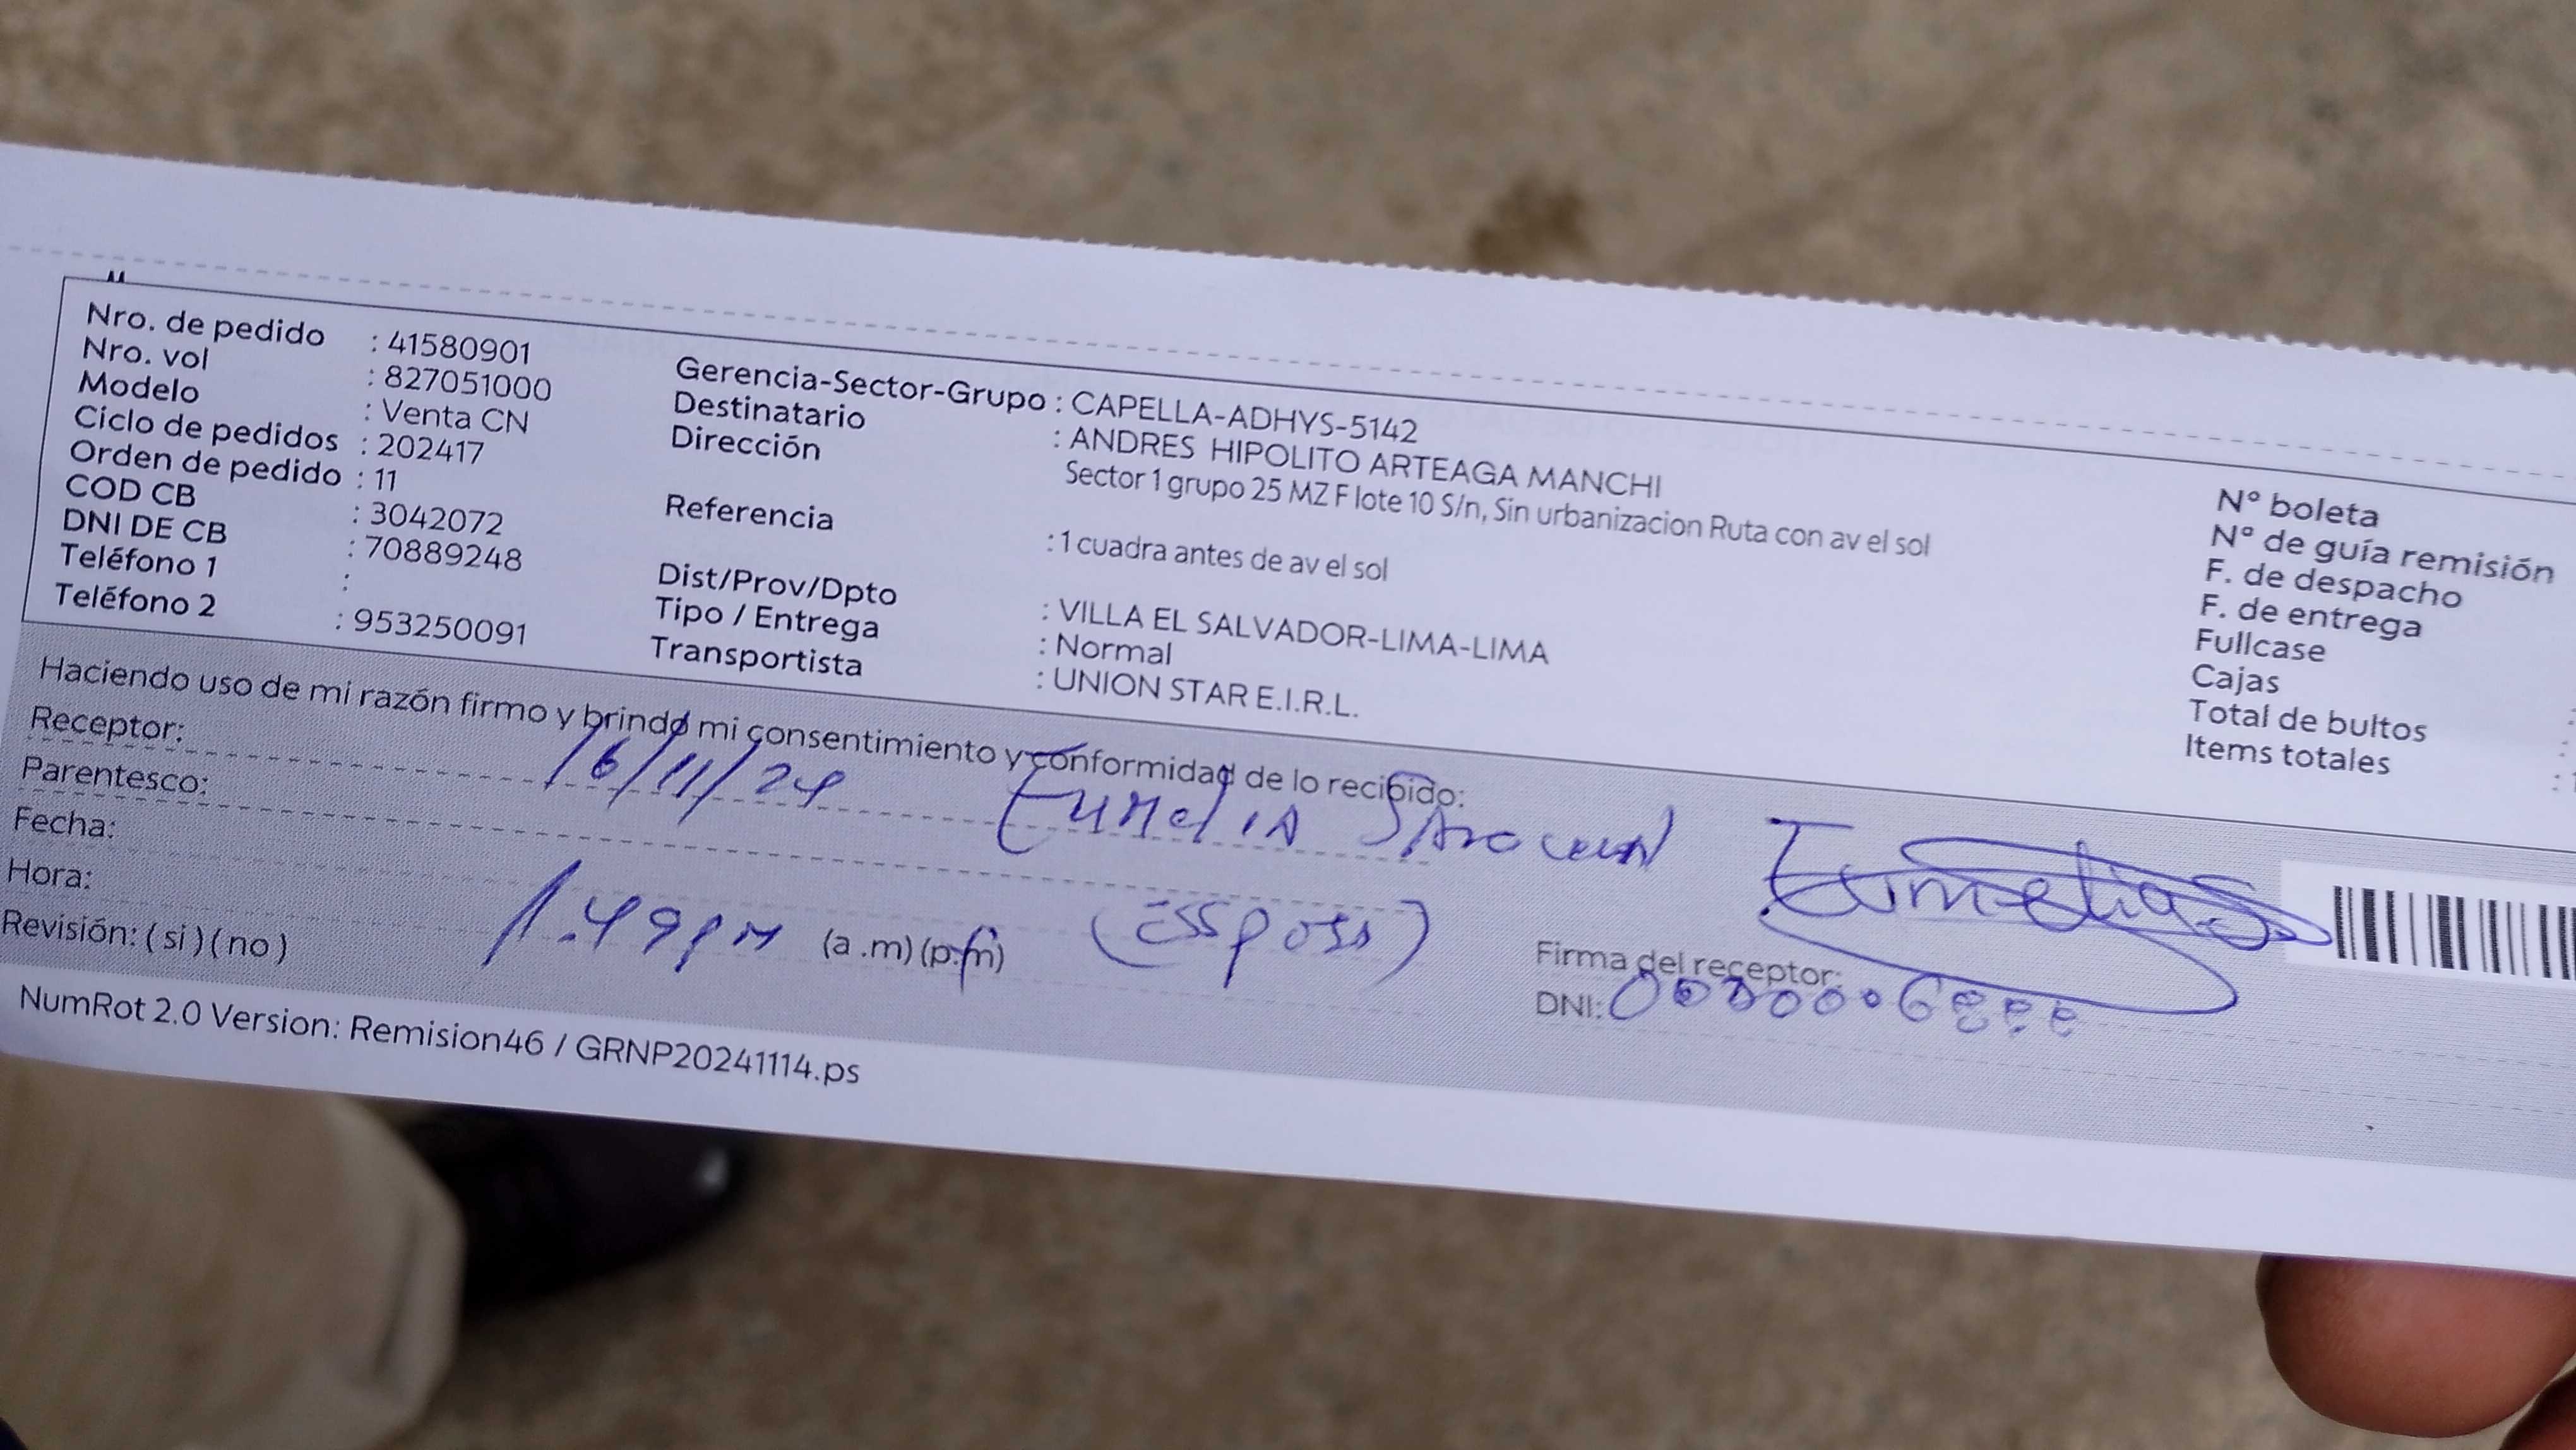 Nro. de pedido : 41580901
Nro. vol : 827051000
Modelo : Venta CN
Ciclo de pedidos : 202417
Orden de pedido : 11
COD CB : 3042072
DNI DE CB : 70889248
Teléfono 1 :
Teléfono 2 : 953250091
Gerencia-Sector-Grupo : CAPELLA-ADHYS-5142
Destinatario : ANDRES HIPOLITO ARTEAGA MANCHI
Dirección Sector 1 grupo 25 MZ F lote 10 S/n, Sin urbanizacion Ruta con av el sol
Referencia : 1 cuadra antes de av el sol
Dist/Prov/Dpto : VILLA EL SALVADOR-LIMA-LIMA
Tipo / Entrega : Normal
Transportista : UNION STAR E.I.R.L.
N° boleta
N° de guía remisión
F. de despacho
F. de entrega
Fullcase
Cajas
Total de bultos
Items totales
Haciendo uso de mi razón firmo y brindo mi consentimiento y conformidad de lo recibido:
Receptor: 16/11/24 Eumelia
Parentesco:
Fecha:
Hora: 1.49 pm (a .m) (p.m) (Essposa)
Revisión: ( si ) ( no )
Eumelia
Firma del receptor:
DNI:
NumRot 2.0 Version: Remision46 / GRNP20241114.ps